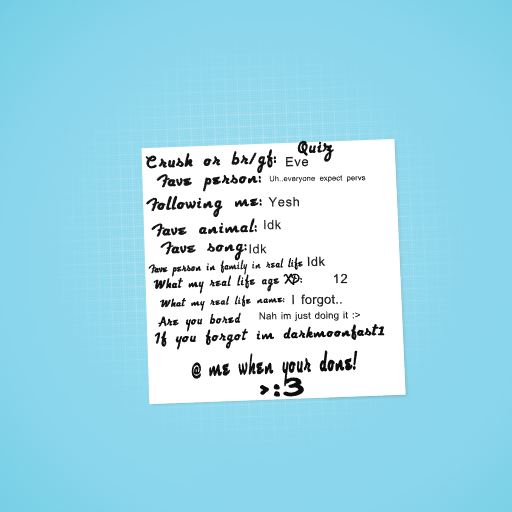 Quiz
Crush or br/gf: Eve
Fave person: Uh..everyone expect pervs
Following me: Yesh
Fave animal: Idk
Fave song: Idk
Fave person in family in real life Idk
What my real life age XD: 12
What my real life name: I forgot..
Are you bored Nah im just doing it :>
If you forgot im darkmoonfast1
@ me when your done!
>:3